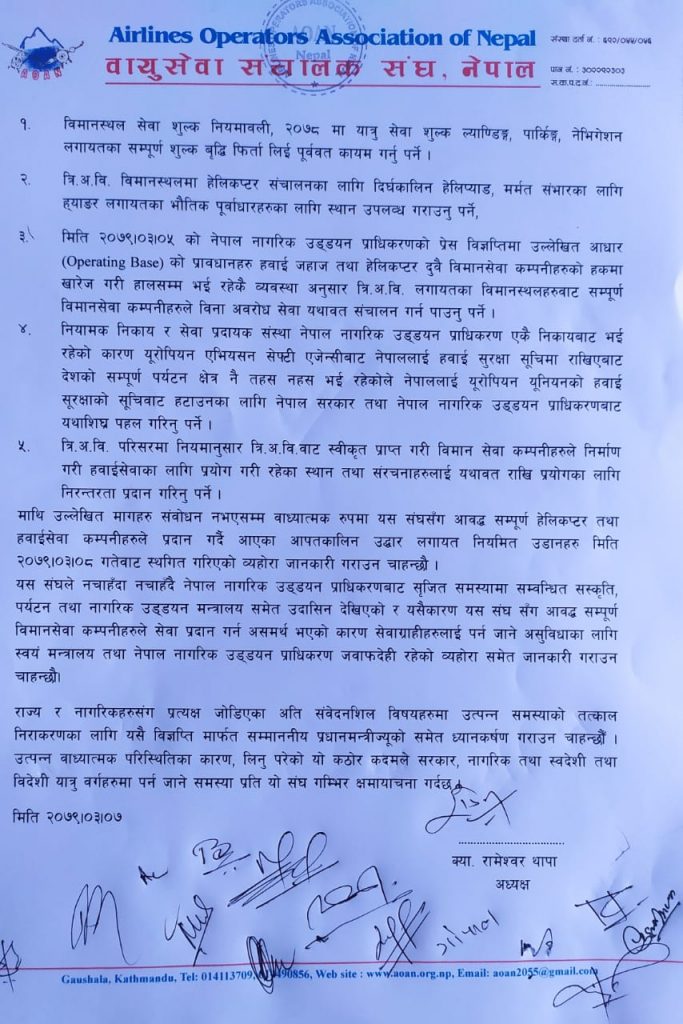 Airlines Operators Association of Nepal
वायुसेवा संचालक संघ, नेपाल
संस्था दर्ता नं. : ६९०/०५५/०५६
पान नं. : ३०००९०३०३
स.क.प.द.नं.: ........................
AOAN
Nepal
१. विमानस्थल सेवा शुल्क नियमावली, २०७८ मा यात्रु सेवा शुल्क ल्याण्डिङ्ग, पार्किङ्ग, नेभिगेशन
लगायतका सम्पूर्ण शुल्क बृद्धि फिर्ता लिई पूर्ववत कायम गर्नु पर्ने ।
२. त्रि.अ.वि. विमानस्थलमा हेलिकप्टर संचालनका लागि दिर्घकालिन हेलिप्याड, मर्मत संभारका लागि
ह्याङर लगायतका भौतिक पूर्वाधारहरुका लागि स्थान उपलव्ध गराउनु पर्ने,
३. मिति २०७९।०३।०५ को नेपाल नागरिक उड्डयन प्राधिकरणको प्रेस विज्ञप्तिमा उल्लेखित आधार
(Operating Base) को प्रावधानहरु हवाई जहाज तथा हेलिकप्टर दुवै विमानसेवा कम्पनीहरुको हकमा
खारेज गरी हालसम्म भई रहेकै व्यवस्था अनुसार त्रि.अ.वि. लगायतका विमानस्थलहरुबाट सम्पूर्ण
विमानसेवा कम्पनीहरुले विना अवरोध सेवा यथावत संचालन गर्न पाउनु पर्ने ।
४. नियामक निकाय र सेवा प्रदायक संस्था नेपाल नागरिक उड्डयन प्राधिकरण एकै निकायबाट भई
रहेको कारण यूरोपियन एभियसन सेफ्टी एजेन्सीबाट नेपाललाई हवाई सुरक्षा सूचिमा राखिएबाट
देशको सम्पूर्ण पर्यटन क्षेत्र नै तहस नहस भई रहेकोले नेपाललाई यूरोपियन यूनियनको हवाई
सुरक्षाको सूचिवाट हटाउनका लागि नेपाल सरकार तथा नेपाल नागरिक उड्डयन प्राधिकरणबाट
यथाशिघ्र पहल गरिनु पर्ने ।
५. त्रि.अ.वि. परिसरमा नियमानुसार त्रि.अ.वि.वाट स्वीकृत प्राप्त गरी विमान सेवा कम्पनीहरुले निर्माण
गरी हवाईसेवाका लागि प्रयोग गरी रहेका स्थान तथा संरचनाहरुलाई यथावत राखि प्रयोगका लागि
निरन्तरता प्रदान गरिनु पर्ने ।
माथि उल्लेखित मागहरु संवोधन नभएसम्म वाध्यात्मक रुपमा यस संघसँग आवद्ध सम्पूर्ण हेलिकप्टर तथा
हवाईसेवा कम्पनीहरुले प्रदान गर्दै आएका आपतकालिन उद्धार लगायत नियमित उडानहरु मिति
२०७९।०३।०८ गतेवाट स्थगित गरिएको व्यहोरा जानकारी गराउन चाहन्छौ ।
यस संघले नचाहँदा नचाहँदै नेपाल नागरिक उड्डयन प्राधिकरणबाट सृजित समस्यामा सम्वन्धित सस्कृति,
पर्यटन तथा नागरिक उड्डयन मन्त्रालय समेत उदासिन देखिएको र यसैकारण यस संघ सँग आवद्ध सम्पूर्ण
विमानसेवा कम्पनीहरुले सेवा प्रदान गर्न असमर्थ भएको कारण सेवाग्राहीहरुलाई पर्न जाने असुविधाका लागि
स्वयं मन्त्रालय तथा नेपाल नागरिक उड्डयन प्राधिकरण जवाफदेही रहेको व्यहोरा समेत जानकारी गराउन
चाहन्छौ।
राज्य र नागरिकहरुसंग प्रत्यक्ष जोडिएका अति संवेदनशिल विषयहरुमा उत्पन्न समस्याको तत्काल
निराकरणका लागि यसै विज्ञप्ति मार्फत सम्माननीय प्रधानमन्त्रीज्यूको समेत ध्यानकर्षण गराउन चाहन्छौं ।
उत्पन्न वाध्यात्मक परिस्थितिका कारण, लिनु परेको यो कठोर कदमले सरकार, नागरिक तथा स्वदेशी तथा
विदेशी यात्रु वर्गहरुमा पर्न जाने समस्या प्रति यो संघ गम्भिर क्षमायाचना गर्दछ ।
मिति २०७९।०३।०७
क्या. रामेश्वर थापा
अध्यक्ष
Gaushala, Kathmandu, Tel: 014113709, Web site : www.aoan.org.np, Email: aoan2055@gmail.com